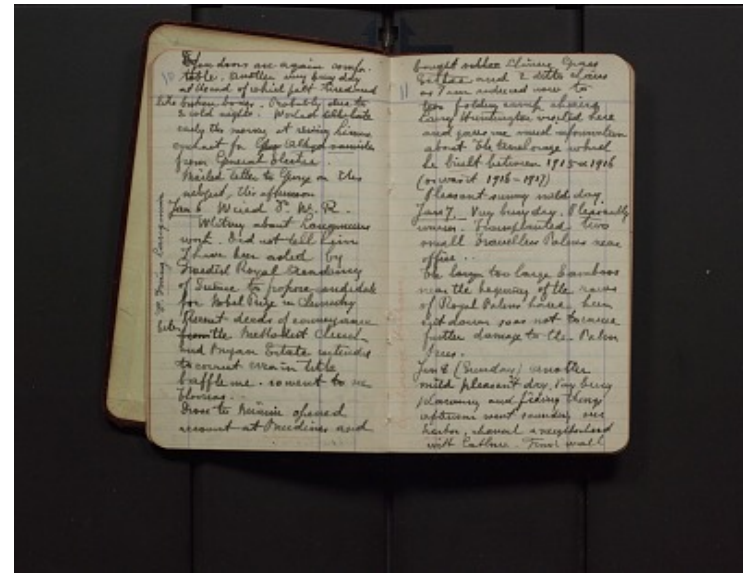 10
doors are again comfor-
table. Another very busy day
at the end of which felt tired and
like broken bones. Probably due to
2 cold nights. Worked
early this morning at
contract for
from General Electric.
Mailed letter to George on this
subject, this afternoon
Jan 6. Wired
Whitney about Longmuirs
work. Did not tell him
I have been asked by
Swedish Royal Academy
of Science to propose candidate
for Nobel Prize in Chemistry
Recent deeds of conveyance
from the Methodist Church
and Bryan Estate intended
to correct error in title
baffle me.
Drove to Miami opened
account at Burdines and
11
bought
and 2 ditto chairs
as I am ordered now to
two folding camp chairs
Larry Huntington visited here
and gave me much information
about The Anchorage which
he built between 1915 & 1916
(or was it 1916-1917)
Pleasant sunny mild day.
Jan 7. Very busy day. Pleasantly
warm. Transplanted two
small Travellers Palms near
office..
The large too large Bamboos
near the beginning of the rows
of Royal Palms have been
cut down so as not to cause
further damage to the Palm
trees.
Jan 8 (Sunday) Another
mild pleasant day. Very busy
planning and fixing things
afternoon went sounding our
harbor, channel & neighborhood
with